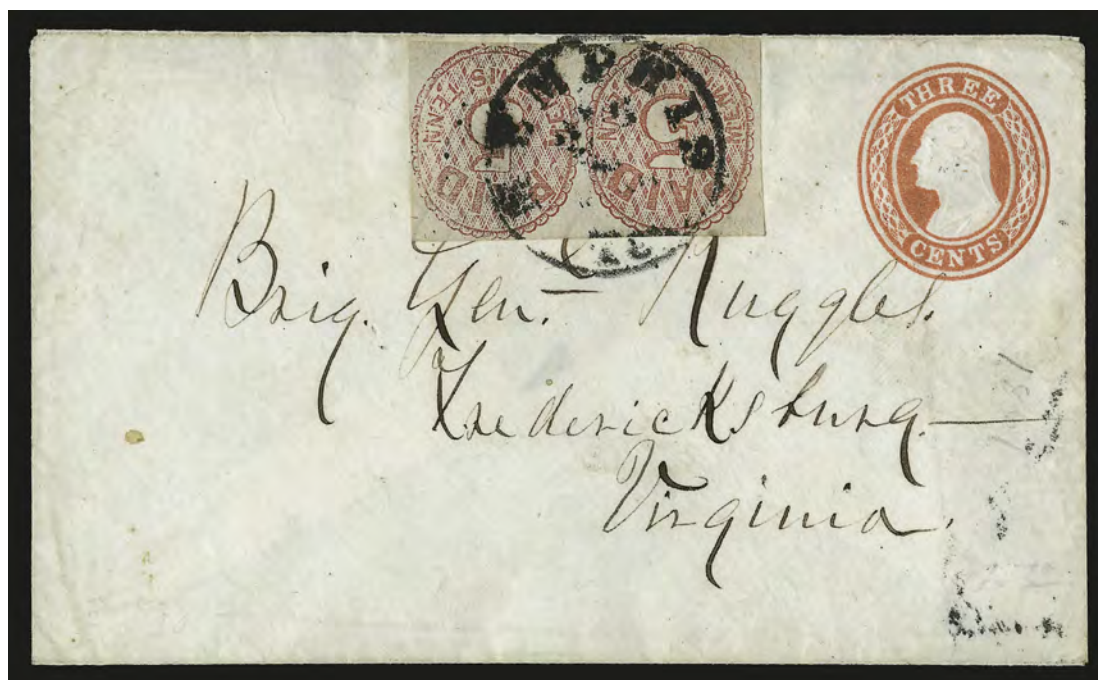 MEMPHIS
PAID
5
PAID
5
THREE
CENTS
Brig. Gen. Ruggles.
Fredericksburg
Virginia.